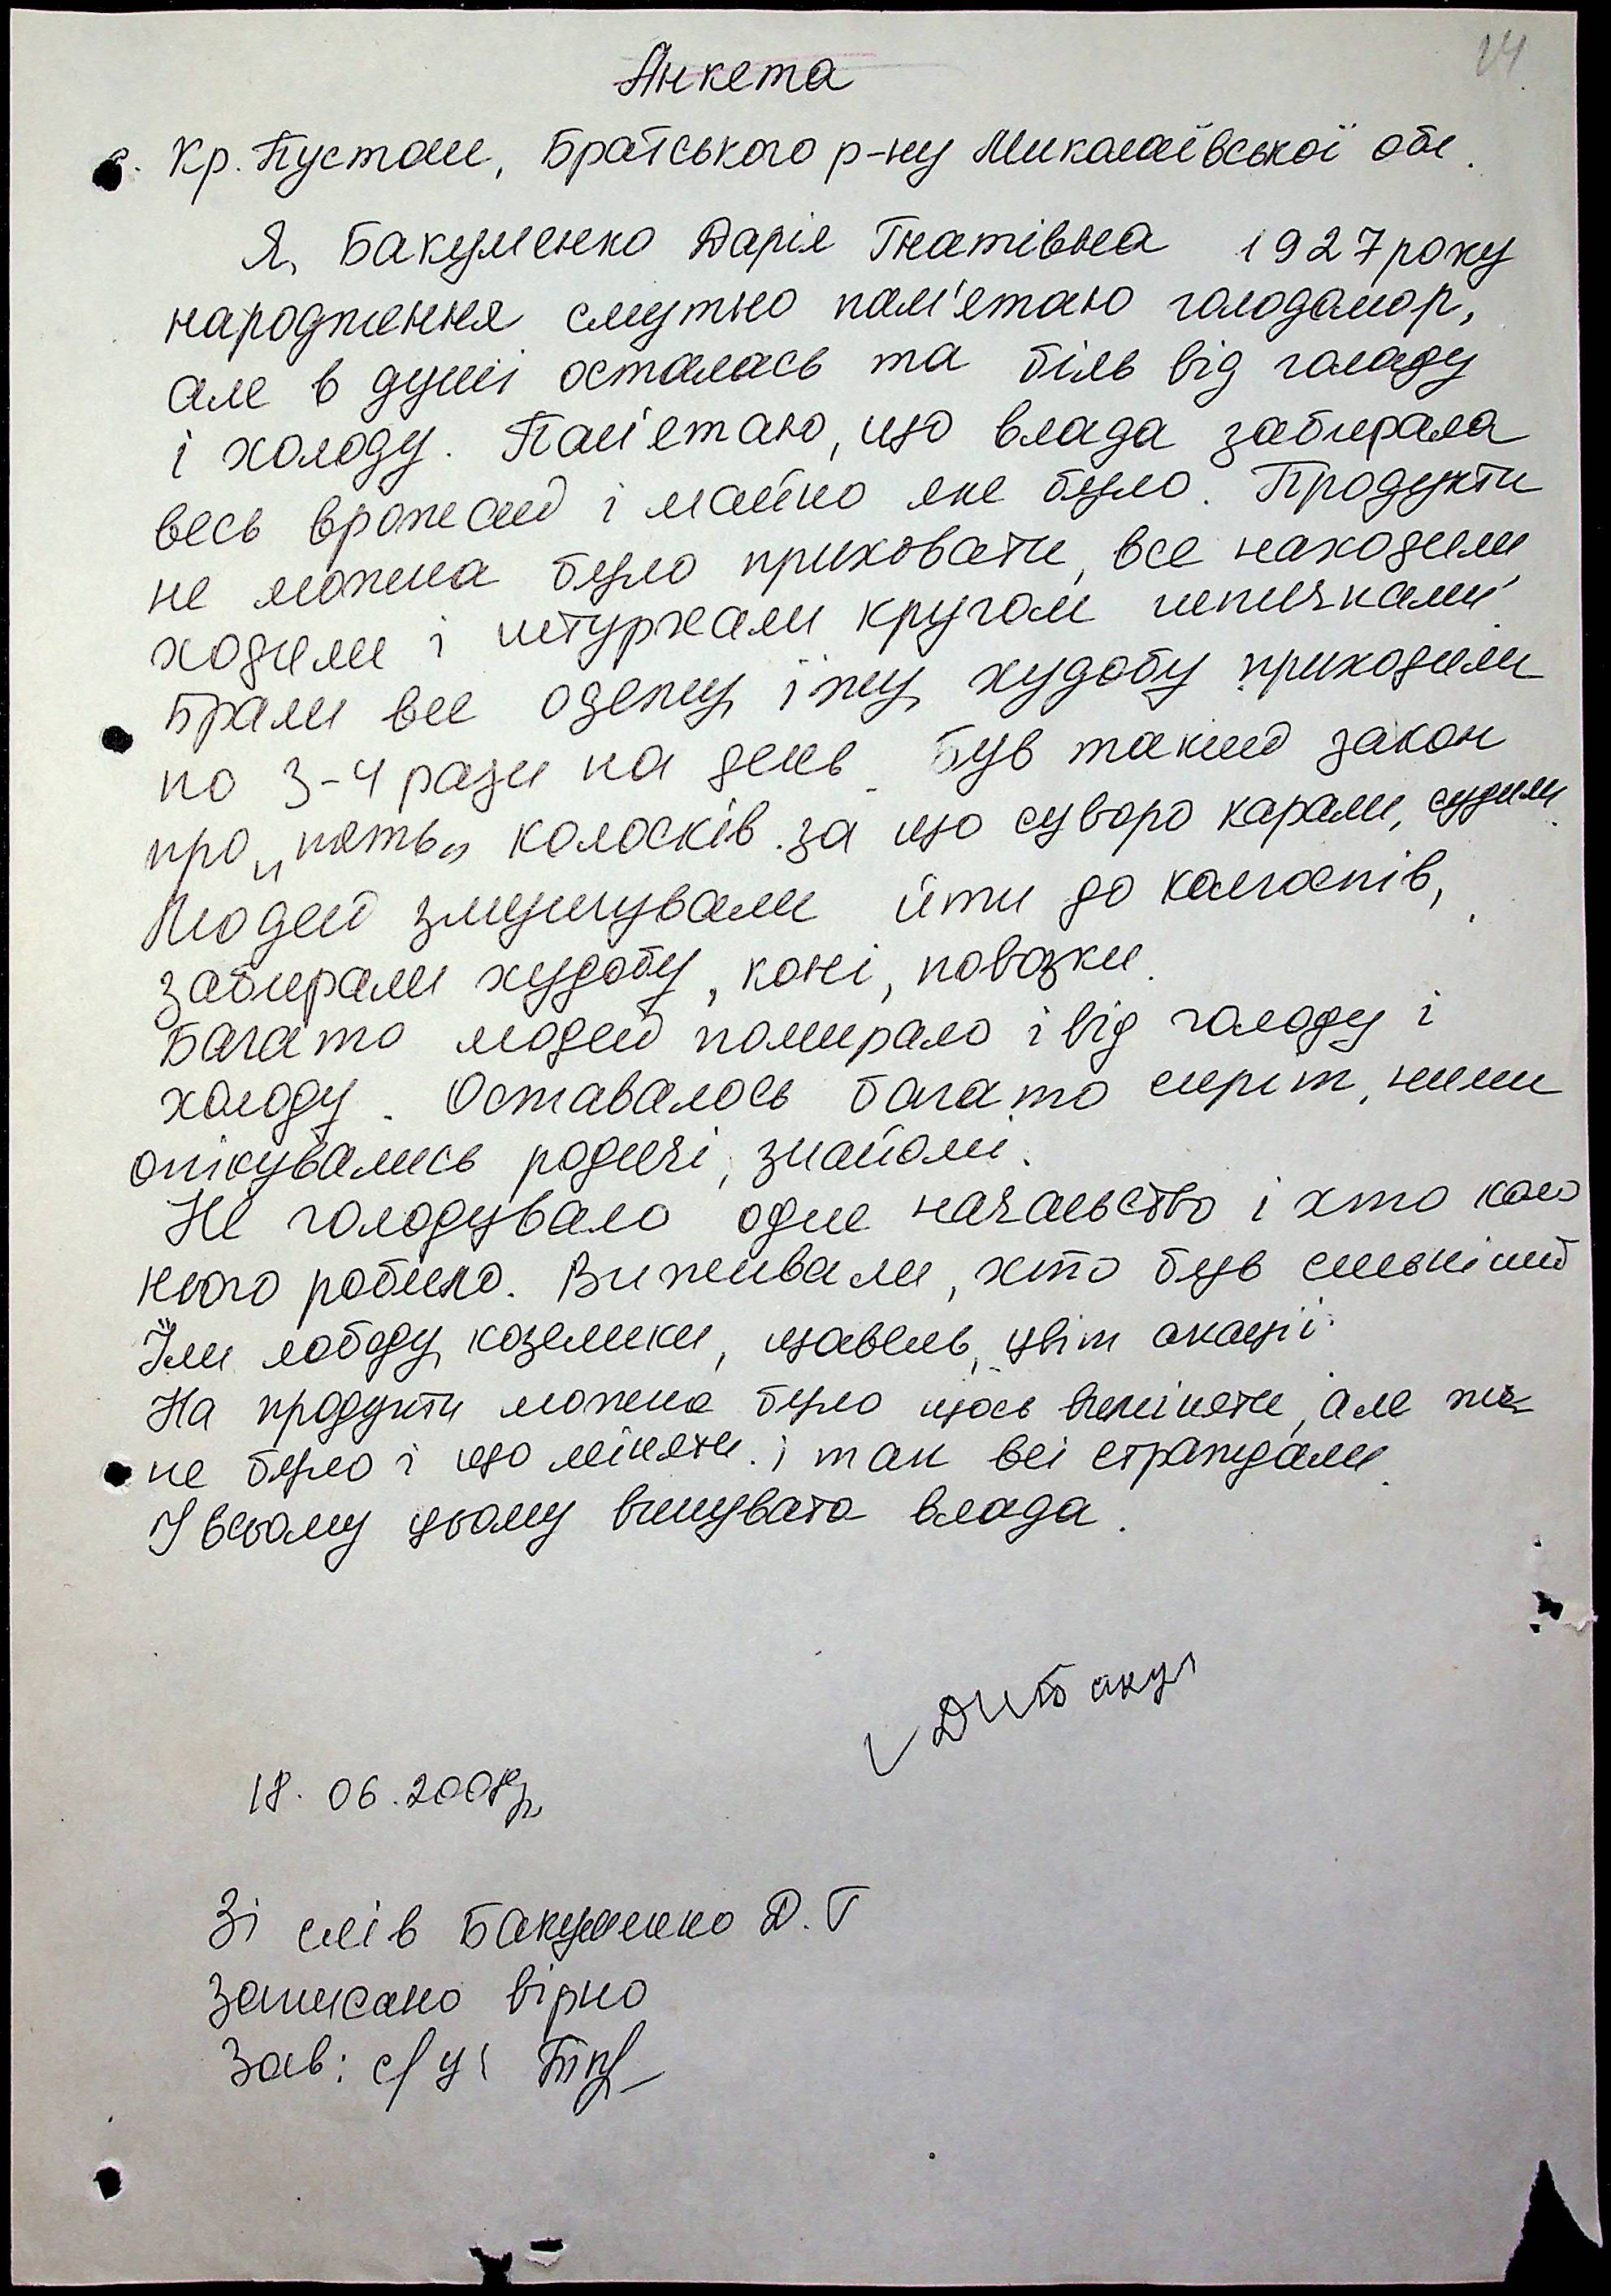 24
Анкета
с. Кр. Пустош, Братського р-ну Миколаївської обл.
Я, Бакуменко Дарія Гнатівна 1927 року
народження смутно пам'ятаю голодомор,
але в душі осталась та біль від голоду
і холоду. Пам'ятаю, що влада забирала
весь врожай і майно яке було. Продукти
не можна було приховати, все находили
ходили і штурхали кругом шпичками.
Брали все одежу, їжу, худобу приходили
по 3-4 рази на день. Був такий закон
про „пять" колосків. за що суворо карали, судили.
Людей змушували йти до колгоспів,
забирали худобу, коні, повозки.
Багато людей помирало і від голоду і
холоду. Оставалось багато сиріт, ними
опікувались родичі, знайомі.
Не голодувало одне начальство і хто коло
нього робило. Виживали, хто був сильніший
Їли лободу, козелики, щавель, цвіт акації.
На продукти можна було щось виміняти, але
не було і що міняти. і так всі страждали.
У всьому цьому винувата влада.
18. 06. 2008р.
Зі слів Бакуменко Д. Г
Записано вірно
Зав: